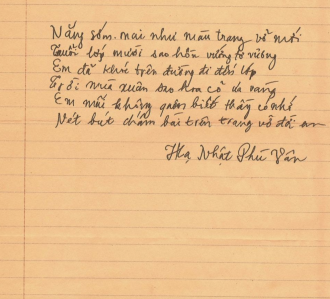 Nắng sớm mai như màu trang vở mới
Tuổi lớp mười sao hồn vướng tơ vương
Em đã khóc trên đường đi đến lớp
ơi mùa xuân sao hoa cỏ úa vàng
Em mãi không quên biết thầy cô
Nét bút chấm bài tròn trang vở
Hạ Nhật Phú Vân